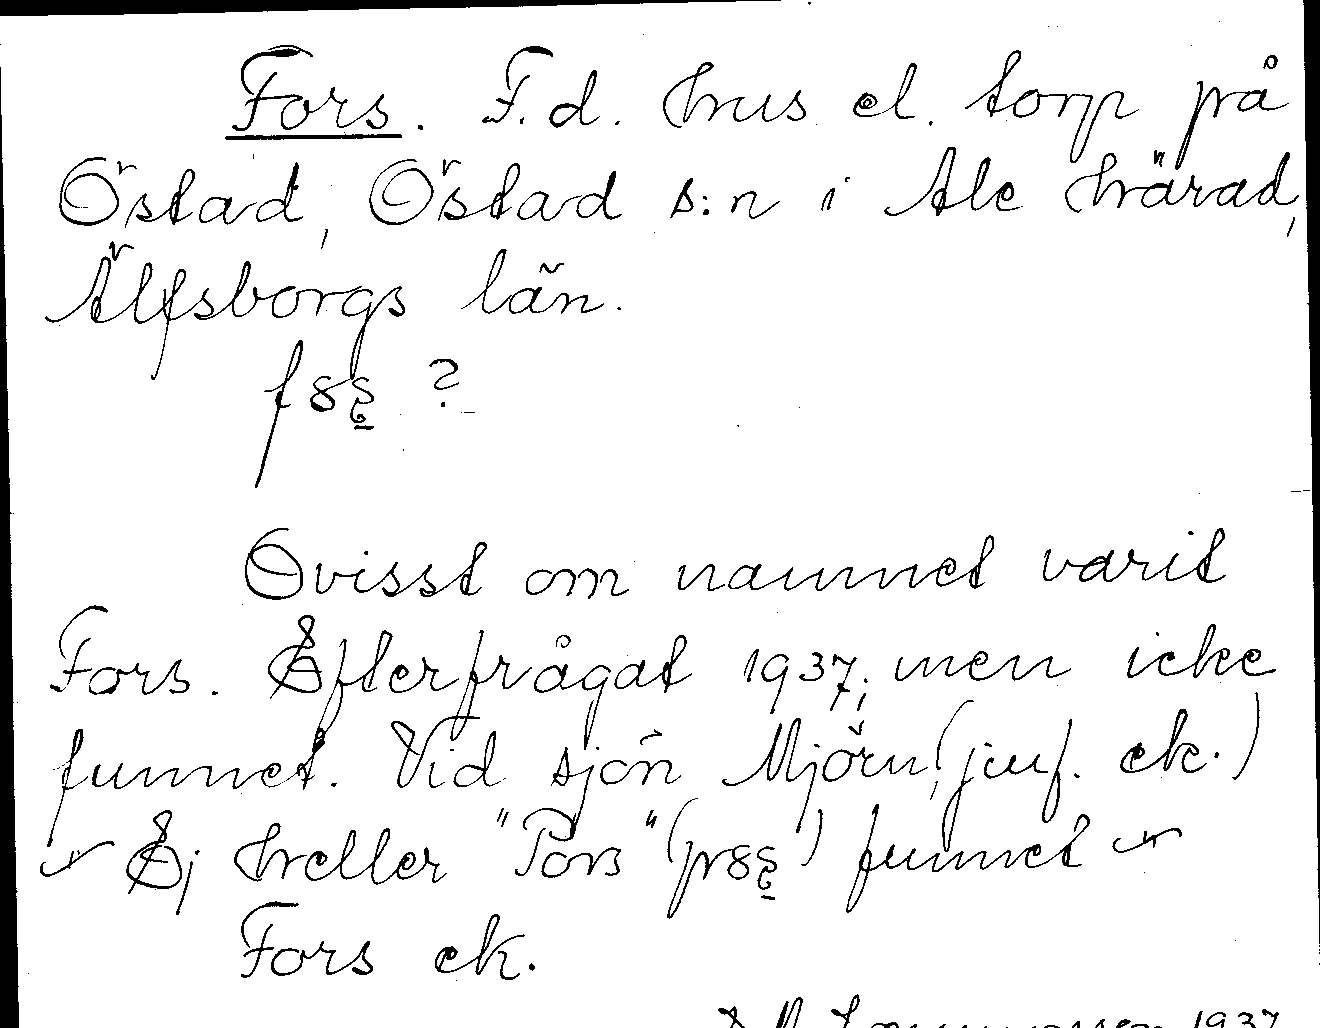 Fors. F.d. hus el. torp på
Östad, Östad s:n i Ale härad,
Älfsborgs län.
?
Ovisst om namnet varit
Fors. Efterfrågat 1937, men icke
funnet. Vid sjön Mjörn, (jmf. ek.)
Ej heller "Pors" funnet
Fors ek.
1937